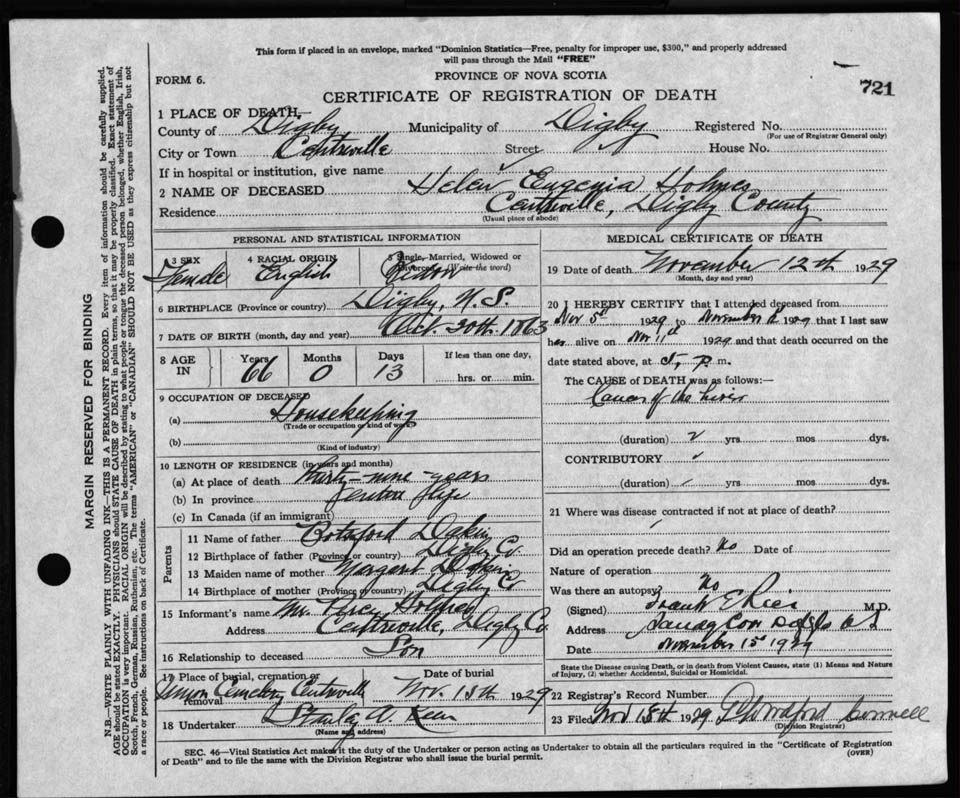 This form if placed in an envelope, marked "Dominion Statistics—Free, penalty for improper use, $300," and properly addressed
will pass through the Mail "FREE"
FORM 6.
PROVINCE OF NOVA SCOTIA
721
CERTIFICATE OF REGISTRATION OF DEATH
1 PLACE OF DEATH,
County of Digby Municipality of Digby Registered No.
(For use of Registrar General only)
City or Town Centreville Street House No.
If in hospital or institution, give name
2 NAME OF DECEASED Helen Eugenia Holmes
Residence Centreville, Digby County
(Usual place of abode)
PERSONAL AND STATISTICAL INFORMATION
3 SEX 4 RACIAL ORIGIN 5 Single, Married, Widowed or
Divorced (Write the word)
Female English Widow
6 BIRTHPLACE (Province or country) Digby, N.S.
7 DATE OF BIRTH (month, day and year) Oct. 30th. 1863
8 AGE IN Years Months Days If less than one day,
66 0 13 hrs. or min.
9 OCCUPATION OF DECEASED
(a) Housekeeping
(Trade or occupation or kind of work)
(b)
(Kind of industry)
10 LENGTH OF RESIDENCE (in years and months)
(a) At place of death thirty-nine-years
(b) In province life
(c) In Canada (if an immigrant)
Parents
11 Name of father Botsford Dakin
12 Birthplace of father (Province or country) Digby Co.
13 Maiden name of mother Margaret Dakin
14 Birthplace of mother (Province or country) Digby Co
15 Informant's name Mr. Percy Holmes
Address Centreville, Digby Co.
16 Relationship to deceased Son
17 Place of burial, cremation or removal Date of burial
Union Cemetery Centreville Nov. 15th 1929
18 Undertaker Stanley A.
(Name and address)
MEDICAL CERTIFICATE OF DEATH
19 Date of death November 12th 1929
(Month, day and year)
20 I HEREBY CERTIFY that I attended deceased from
Nov 5th 1929 to November 12 1929 that I last saw
her alive on Nov 11th 1929 and that death occurred on the
date stated above, at p. m.
The CAUSE of DEATH was as follows:—
Cancer of the Liver
(duration) 2 yrs mos dys.
CONTRIBUTORY
(duration) yrs mos dys.
21 Where was disease contracted if not at place of death?
Did an operation precede death? No Date of
Nature of operation
Was there an autopsy No
(Signed) Frank E Rice M.D.
Address Sandy Cove Digby Co N S
Date November 15 1929
State the Disease causing Death, or in death from Violent Causes, state (1) Means and Nature
of Injury, (2) whether Accidental, Suicidal or Homicidal.
22 Registrar's Record Number
23 Filed Nov 15th 1929
(Division Registrar)
SEC. 46—Vital Statistics Act makes it the duty of the Undertaker or person acting as Undertaker to obtain all the particulars required in the "Certificate of Registration
of Death" and to file the same with the Division Registrar who shall issue the burial permit.
(OVER)
MARGIN RESERVED FOR BINDING
N.B.—WRITE PLAINLY WITH UNFADING INK—THIS IS A PERMANENT RECORD. Every item of information should be carefully supplied.
AGE should be stated EXACTLY. PHYSICIANS should STATE CAUSE OF DEATH in plain terms, so that it may be properly classified. Exact statement of
OCCUPATION is very important. RACIAL ORIGIN will be described by stating to what people or tongue the deceased person belonged, whether English, Irish,
Scotch, French, German, Russian, Ruthenian, etc. The terms "AMERICAN" or "CANADIAN" SHOULD NOT BE USED as they express citizenship but not
a race or people. See instructions on back of Certificate.